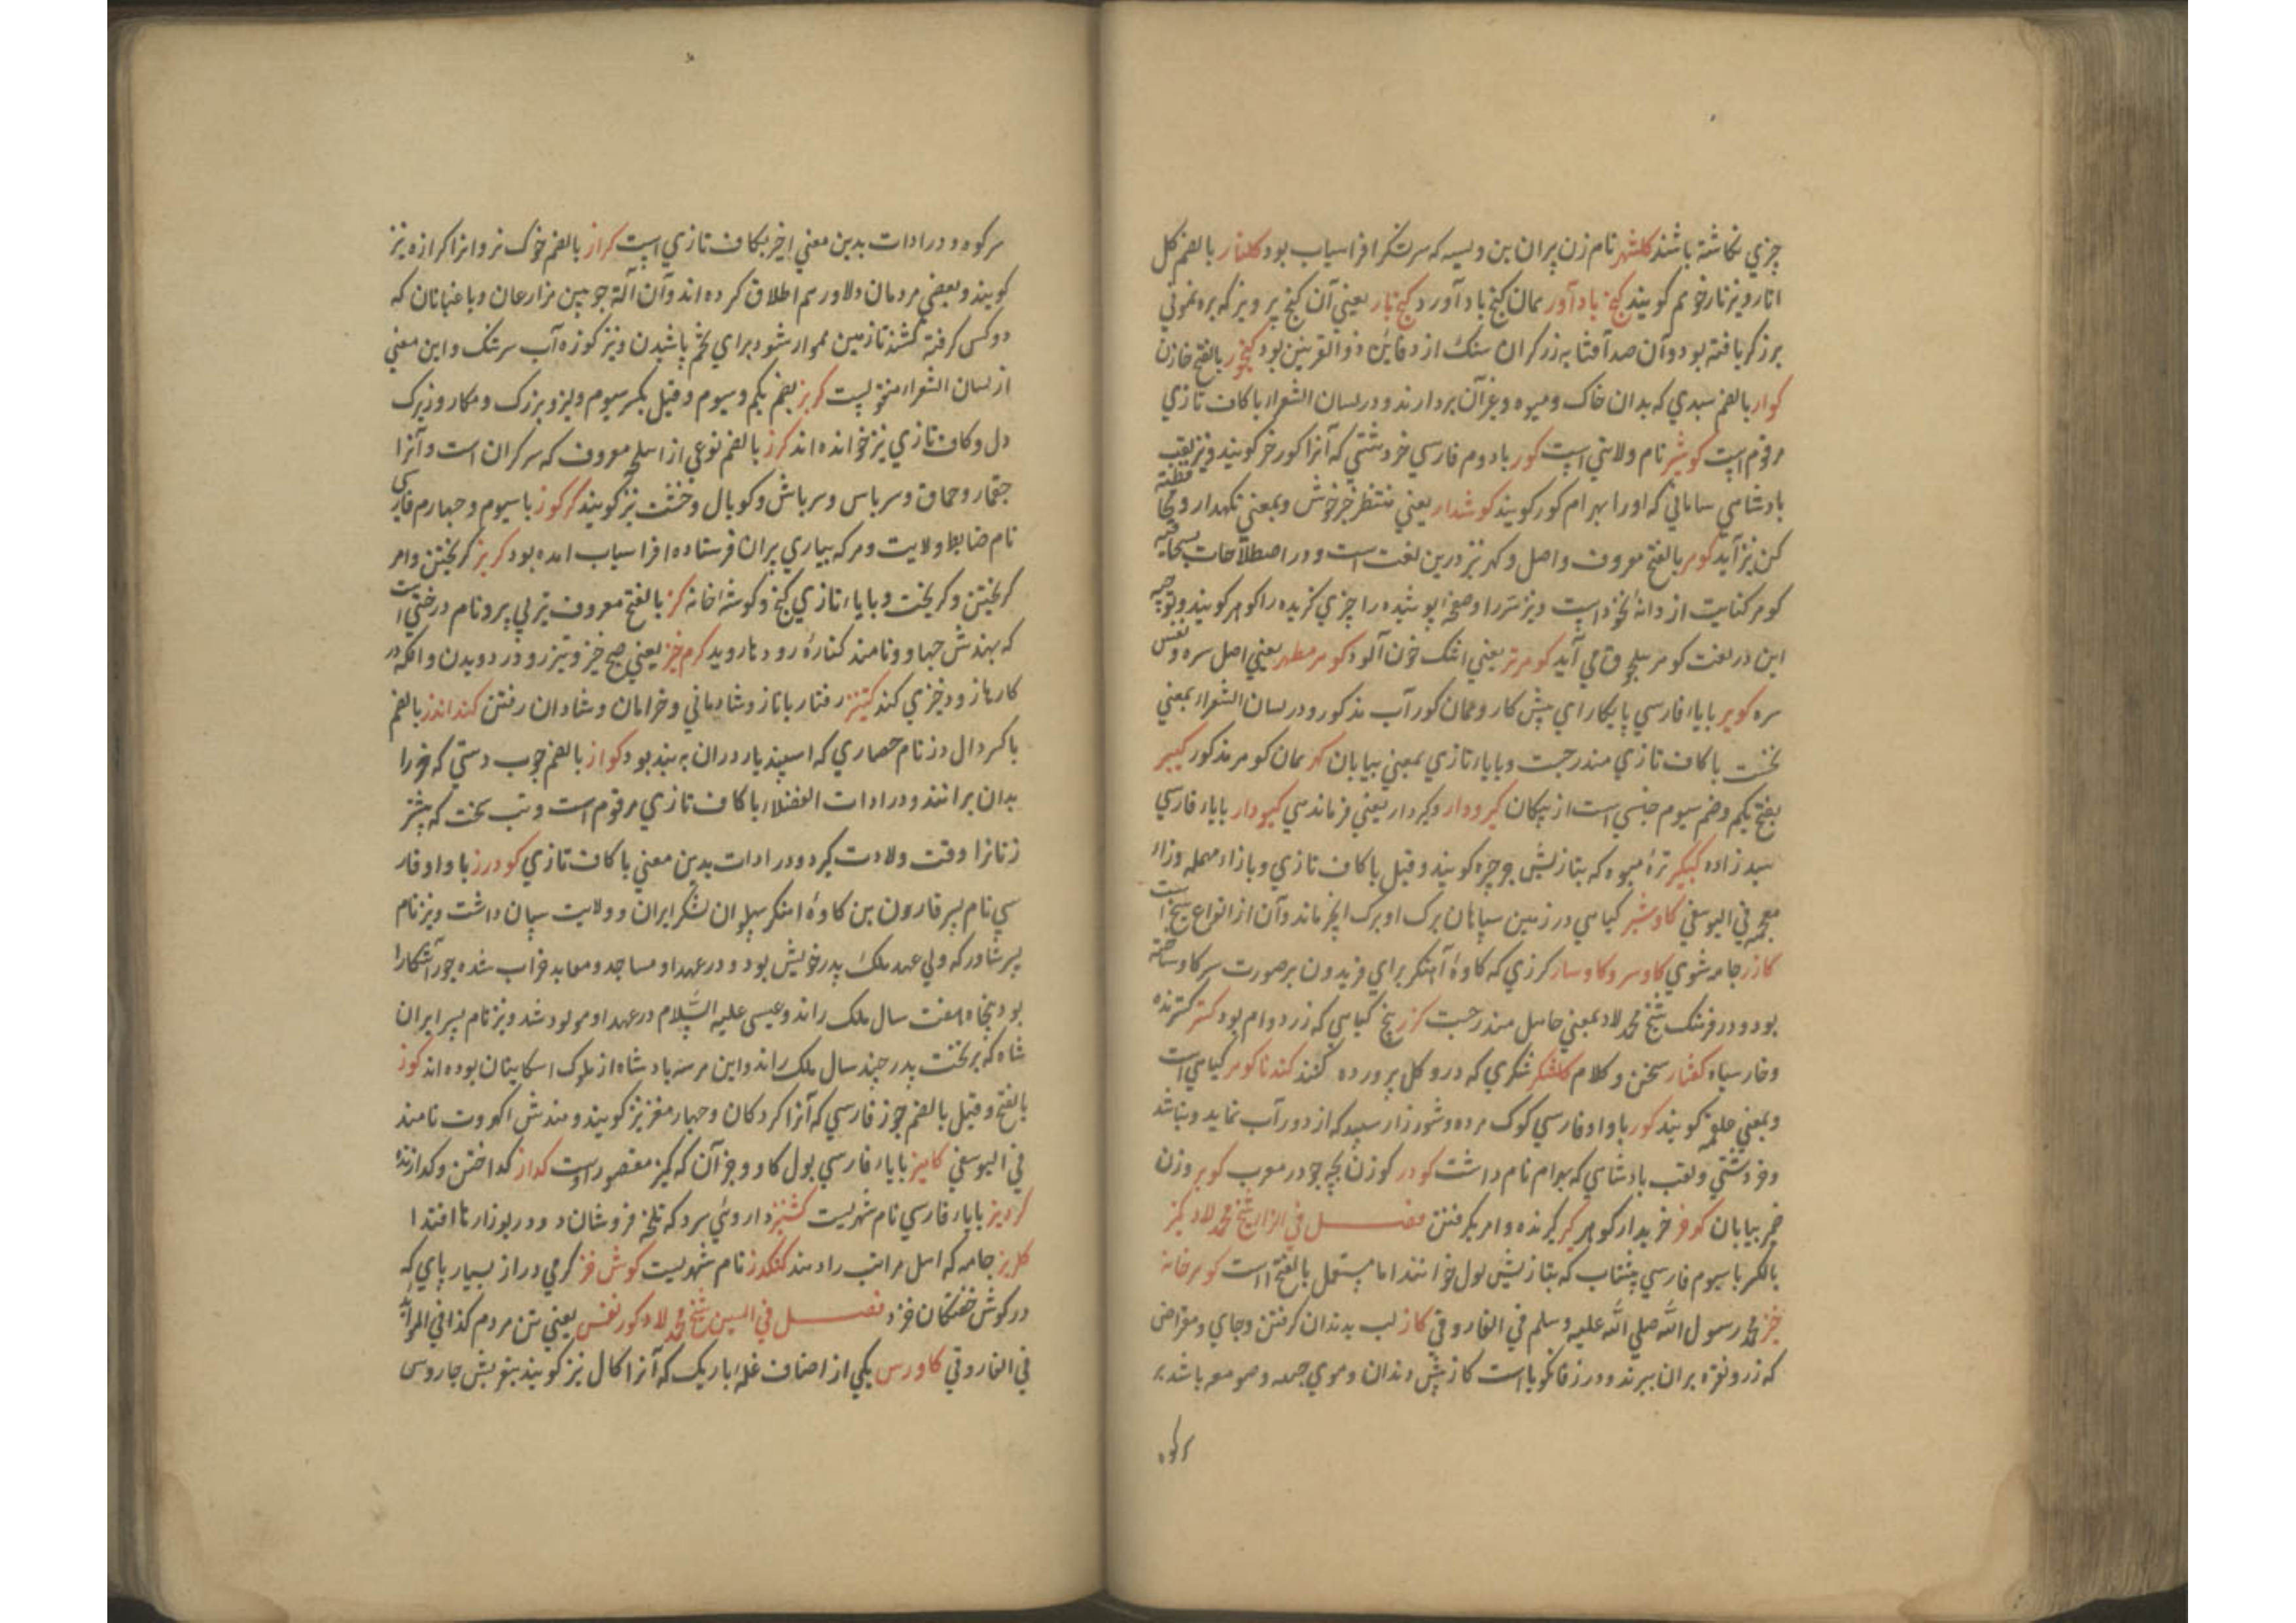 چیزی نکاشته باشند کلشهر نام زن پیران بن ویسه که سر لشکر افراسیاب بود کلنار بالضم کل
انار و نیز نار خرم کویند کنج بادآور همان کنج باد آورد کنج بار یعنی آن کنج پرویز که برهنمونی
برزکر یافته بود و آن صد آفتابه زر کران سنک از دفاین ذوالقرنین بود کنجور بالفتح خازن
کوار بالضم سبدی که بدان خاک و میوه و غیر آن بردارند و در لسان الشعراء با کاف تازی
مرقوم است کوشیر نام ولایتی است کور با دوم فارسی خر دشتی که آنرا کورخر کویند و نیز لقب
بادشاهی ساسانی که اورا بهرام کور کویند کوشدار یعنی منتظر خبر خوش و بمعنی نکهدار و محافظت
کن نیز آید کوهر بالفتح معروف و اصل و کهر نیز درین لغت است و در اصطلاحات
کوهر کنایت از دانهٔ است و نیز سر را و صفهٔ پوشیده را چیزی کزیده را کوهر کویند و توجیه
این در لغت کوهر می آید کوهر تر یعنی اشک خون آلود کوهر مطهر یعنی اصل سره و نفس
سره کویر با یاء فارسی پایکار ای پیش کار و همان کور آب مذکور و در لسان الشعراء بمعنی
نخست با کاف تازی مندرجست و با یاء تازی بمعنی بیابان کهر همان کوهر مذکور
بفتح یکم و ضم سیوم جنسی است از پیکان کیر و دار و کیردار یعنی فرماندهی کیودار با یاء فارسی
سبد زاده ترهٔ میوه که بتازیش جرجره کویند و قیل با کاف تازی و با زاء مهمله و زاء
معجمه فی الیوسفی کاوشیر کیاهی در زمین سپاهان برک او برک انجیر ماند و آن از انواع است
کازر جامه شوی کاوسر و کاوسار کرزی که کاوهٔ آهنکر برای فریدون بر صورت سر کاو ساخته
بود و در فرهنک شیخ محمد لاد بمعنی حاصل مندرجست کیاهی که زرد وام بود کستر کسترنده
و خار سیاه کفتار سخن و کلام کلشکر شکری که در و کل پرورده کنند کندنا کوهر کیاهی است
و بمعنی کویند کور با واو فارسی کوک مرده و شورزار سپید که از دور آب نماید و نباشد
و خر دشتی و لقب بادشاهی که بهرام نام داشت کودر کوزن بچه جو در معرب کوبر وزن
بیابان کوفر خریدار کوهر کیر کیرنده و امر بکرفتن فصل فی الزاء شیخ محمد لاد
بالکسر با سیوم فارسی که بتازیش بول خوانند اما مستعمل بالفتح است کوهر خانه
خیز محمد رسول الله صلی الله علیه وسلم فی الفاروقی کاز لب بدندان کرفتن و جای و مقراضی
که زر و نقره بران ببرند و در زفانکویا است کاز نیش دندان و موی جمعه و صومعه باشد بر
سر کوه
سر کوه و در ادات بدین معنی اخیر بکاف تازی است کراز بالضم خوک نر و انرا کرازه نیز
کویند و بعضی مردمان دلاور هم اطلاق کرده اند و آن آلهٔ چوبین مزارعان و باغبانان که
دو کس کرفته کشند تا زمین هموار شود برای تخم پاشیدن و نیز کوزه آب سرتنک و این معنی
از لسان الشعراء کربز بضم یکم و سیوم و قیل بکسر سیوم دلیر و بزرک و مکار و زیرک
دل و کاف تازی نیز خوانده اند کرز بالضم نوعی از اسلحه معروف که سر کران است و آنرا
جقمار و حماق و سرباس و سرپاش و کوپال و خشت نیز کویند کرکوز با سیوم و چهارم فارسی
نام ضابط ولایت و مر که بیاری پیران فرستاده افراسیاب امده بود کریز کریختن و امر
کریختن و کریخت و با یاء تازی کنج و کوشه خانه کز بالفتح معروف تیر بی پر و نام درختی است
که بهندش جهاو نامند کنارهٔ رودها روید کرم خیز یعنی صبح خیز و تیزرو در دویدن و انکه در
کارها زود خیزی کند رفتار با ناز و شادمانی و خرامان و شادان رفتن کندانز بالضم
با کسر دال دز نام حصاری که اسپندیار در ان به بند بود کواز بالضم چوب دستی که خر را
بدان برانند و در ادات الفضلاء با کاف تازی مرقوم است و تب سخت که بیشتر
زنانرا وقت ولادت کیرد و در ادات بدین معنی با کاف تازی کودرز با واو فار
سی نام پسر قارون بن کاوهٔ اهنکر پهلوان لشکر ایران و ولایت سپاهان داشت و نیز نام
پسر شاور که ولی عهد ملک پدر خویش بود و در عهد او مساجد و معابد خراب شده جور آشکارا
بود پنجاه هفت سال ملک راند و عیسی علیه السلام در عهد او مولود شد و نیز نام پسر ایران
شاه که بر تخت پدر چند سال ملک راند و این هر سه بادشاه از ملوک اشکانیان بوده اند کوز
بالفتح و قیل بالضم جوز فارسی که آنرا کردکان و چهار مغز نیز کویند و هندش اکهروت نامند
فی الیوسفی کامیز با یاء فارسی بول کاو و جز آن که کمیز مقصور اوست کداز کداختن و کدازنده
کردیز با یاء فارسی نام شهریست کشنیز داروئی سرد که تلخه فروشان و در بوزارها افتد ا
کلریز جامه که اهل مراتب را دهند کنکدز نام شهریست کوش خز کرمی دراز بسیار پای که
در کوش خفتکان خزد فصل فی السین شیخ محمد لاد کورنفس یعنی تن مردم کذا فی المرآت
فی الفاروقی کاورس یکی از اصناف غله باریک که آنرا کال نیز کویند بتعریبش جاورسی